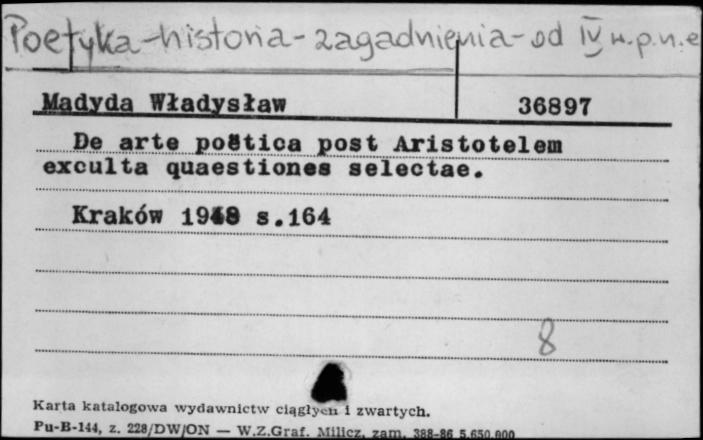 Poetyka-historia-zagadnienia-od IV w.p.n.e
Madyda Władysław 36897
De arte poëtica post Aristotelem
exculta quaestiones selectae.
Kraków 1948 s.164
8
Karta katalogowa wydawnictw ciągłych i zwartych.
Pu-B-144, z. 228/DW/ON — W.Z.Graf. Milicz, zam. 388-86 5.650.000